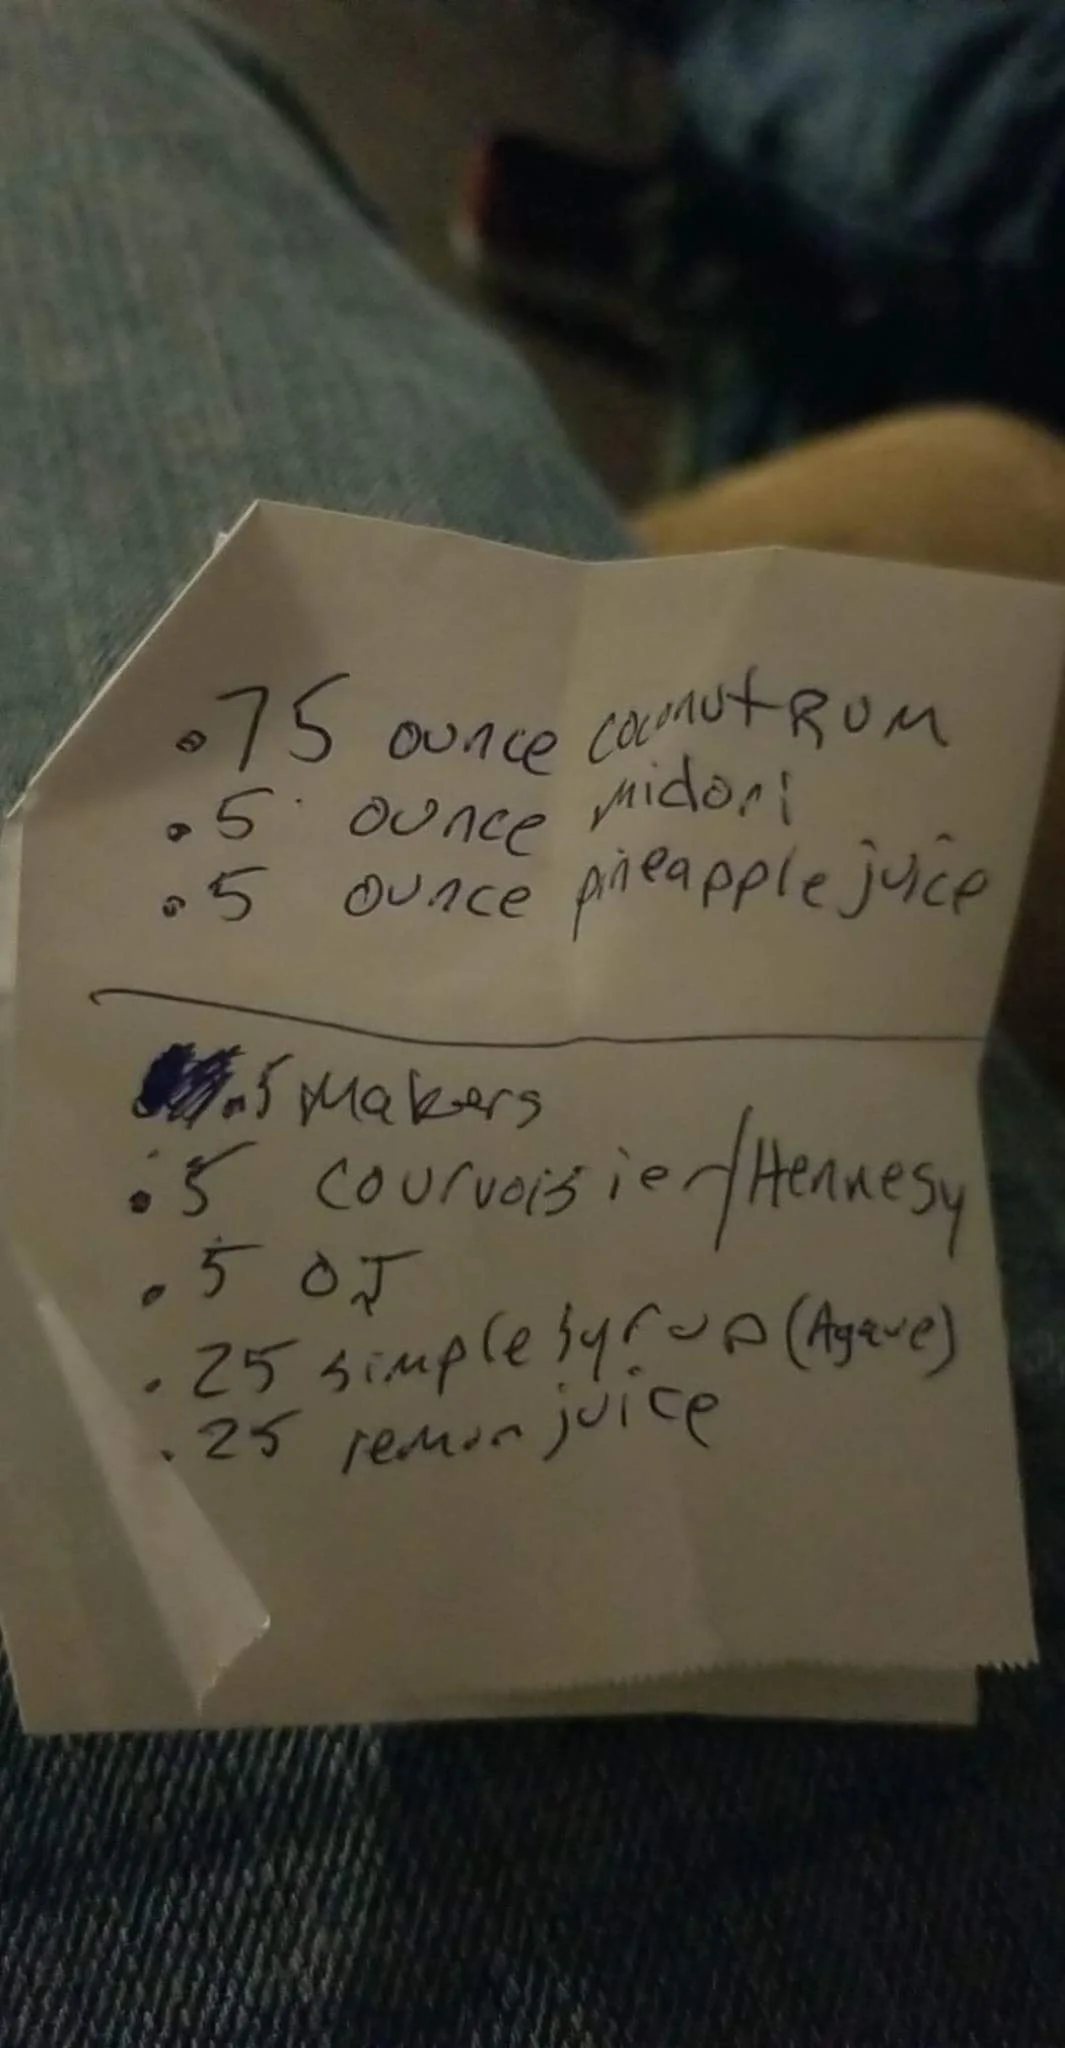 .75 ounce coconut RUM
.5 ounce midori
.5 ounce pineapple juice
.5 Makers
.5 courvoisier/Hennesy
.5 OJ
.25 simple syrup (Agave)
.25 lemon juice